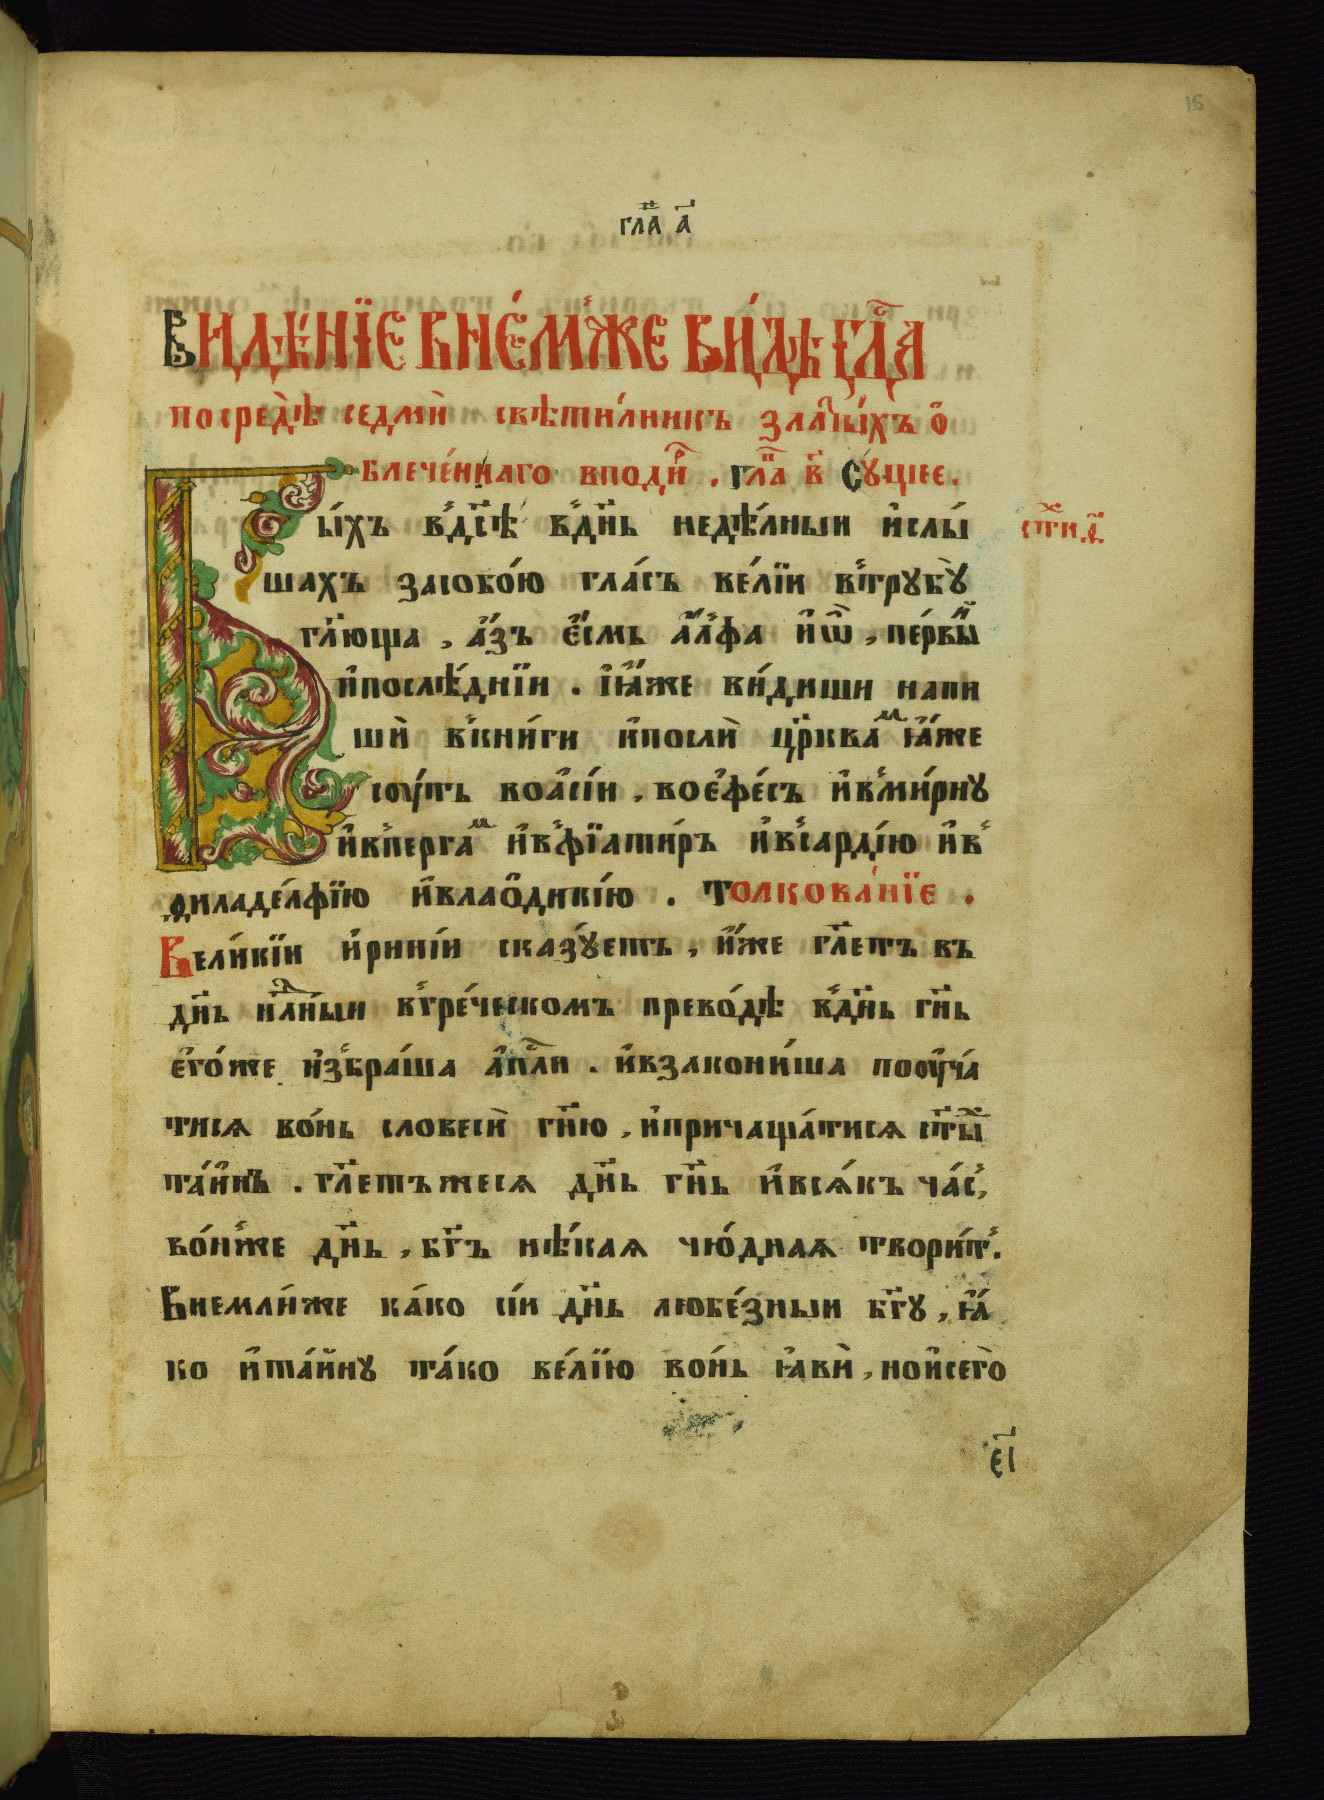 16
гл҃а а҃
Видѣ́нїе внє́мже ви́дѣ гд҇а
посредѣ̀ седмѝ свѣти́лникъ златы́хъ о҆
блече́ннаго вподи́р . гл҃а в҃ Су́щее .
Бы́хъ в̾дс҃ѣ в̾дн҃ь недѣ́лныи и҆слы́ ст҃и д҃
шахъ засобо́ю гла́съ ве́лїи в̾трубꙋ̀
гл҃юща , а҆́зъ е҆́смь а҆́лфа и҆ѡ҆̀ , пе́рвый
и҆послѣ́днїи . і҆ꙗ҆́же ви́диши напи
шѝ в̾кни́ги и҆послѝ цр҃квам ꙗ҆́же
соу́ть воа҆сі́и , вое҆фе́съ и҆в̾ми́рну
и҆в̾пергам и҆в̾фїати́ръ и҆в̾сарді́ю и҆в̾
филаде́лфїю и҆влаѻ҆дикі́ю . Толкова́нїе .
Вели́кїи и҆рині́и сказꙋ́етъ , и҆́же гл҃етъ въ
дн҃ь нд҃лныи в̾гре́ческомъ преводѣ в̾дн҃ь гн҃ь
е҆го́же и҆з̾бра́ша а҆пс҃ли . и҆взакони́ша пооуча́
тися во́нь словесѝ гн҃ю , и҆причаща́тися ст҃ы́х
та́инъ . гл҃етъжеся дн҃ь гн҃ь и҆вся́къ ча́с ,
во́н̾же дн҃ь , бг҃ъ нѣ́кая чю́дная твори́т .
Внемли́же ка́ко сі́и дн҃ь любе́зныи бг҃у , ꙗ҆́
ко и҆та́йну та́ко ве́лїю во́нь ꙗ҆вѝ , нои҆сего̀
е҃і